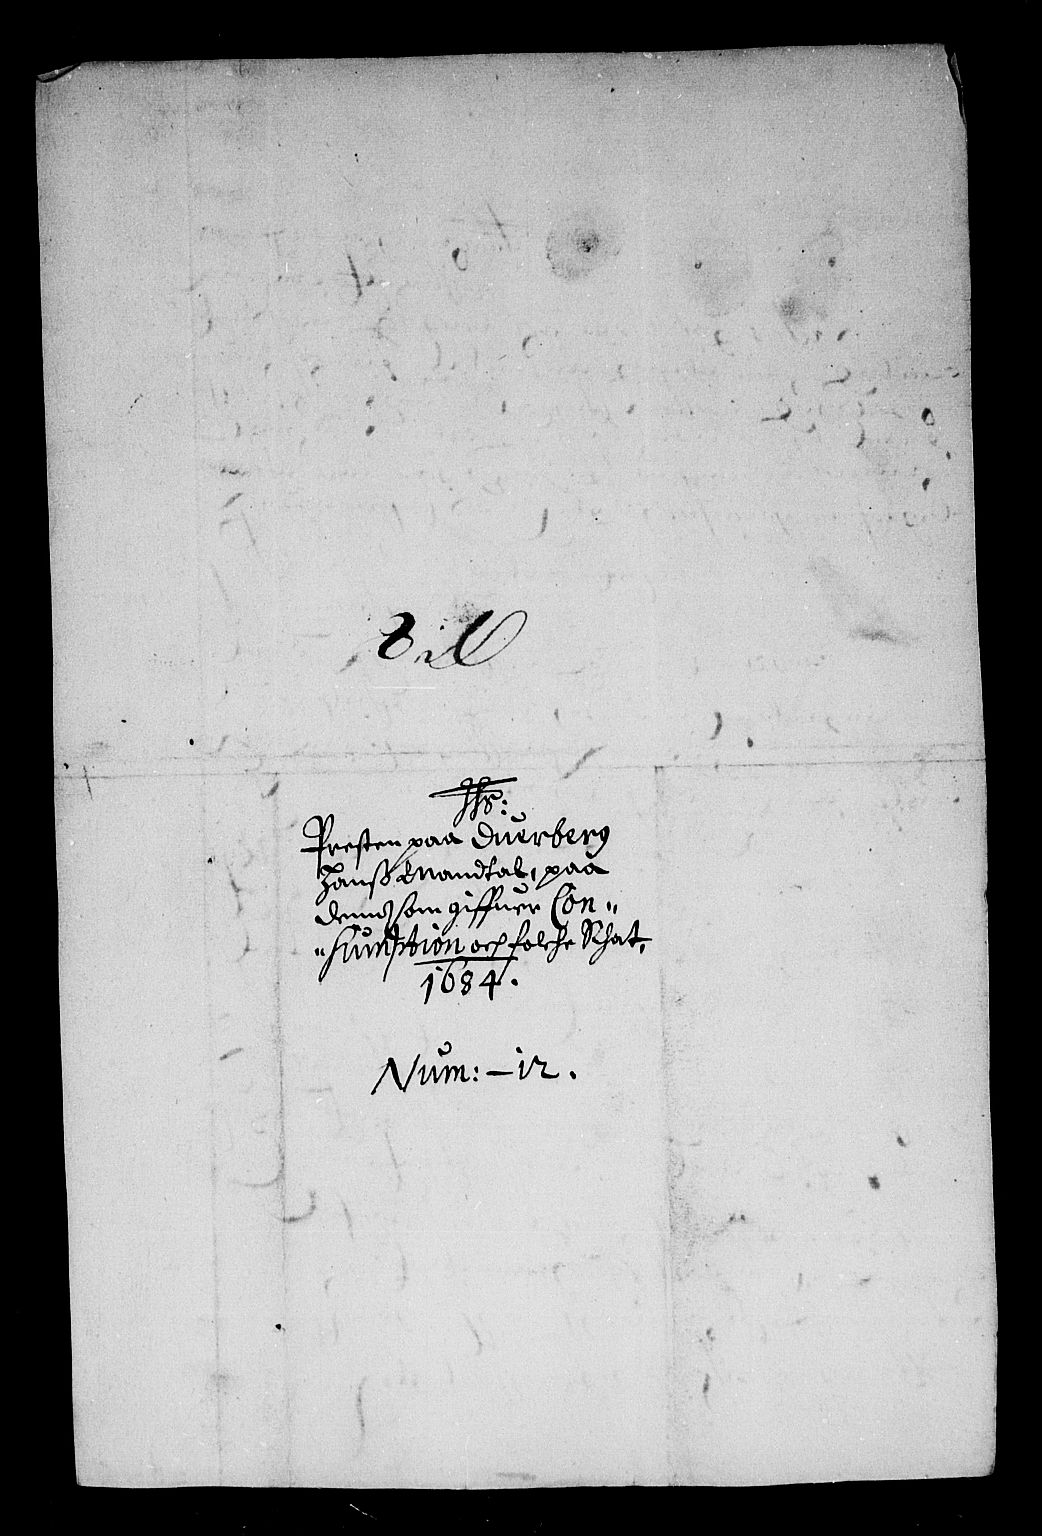 Hr:
Presten paa Ouerberg
Hanss Quandtal, paa
dennd som giffuer Con„
„Sumption och folche Schat,
1684.
Num: – 12.